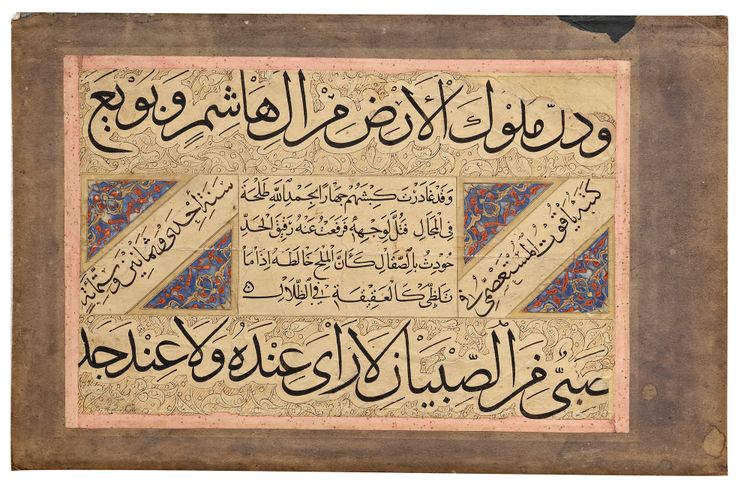 ودل ملوك الأرض من ال هاشم وبويع
كتبه ياقوت المستعصمي
وقد غادرت كبشهم جهارا بحمد الله طلحة
في المجال فتل لوجهه فرفعت عنه رقيق الحد
حودث بالصقال كأن الملح خالطه اذا ما
تلظى كالعقيقة في الظلال
سنة احدى وثمانين وستمائة
صبي من الصبيان لا راى عنده ولا عند جد